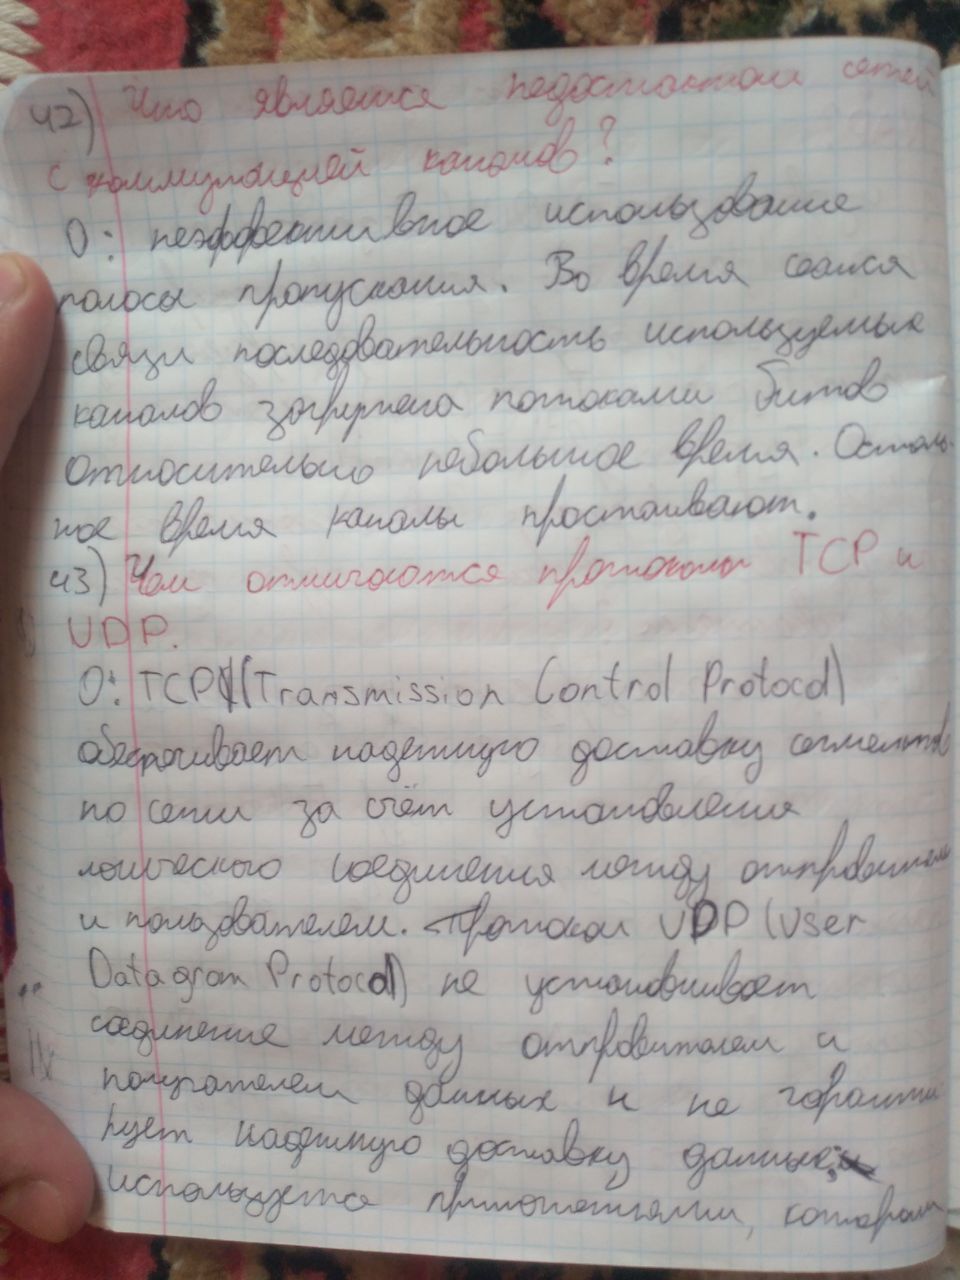 42) Что является недостатком сетей
с коммутацией каналов?
О: неэффективное использование
полосы пропускания. Во время сеанса
связи последовательность используемых
каналов загружена потоками битов
относительно небольшое время. Осталь-
ное время каналы простаивают.
43) Чем отличаются протоколы TCP и
UDP.
О: TCP (Transmission Control Protocol)
обеспечивает надежную доставку сегментов
по сети за счёт установления
логического соединения между отправителем
и пользователем. Протокол UDP (User
Datagram Protocol) не устанавливает
соединение между отправителем и
получателем данных и не гаранти
рует надежную доставку данных,
используется приложениями, которым